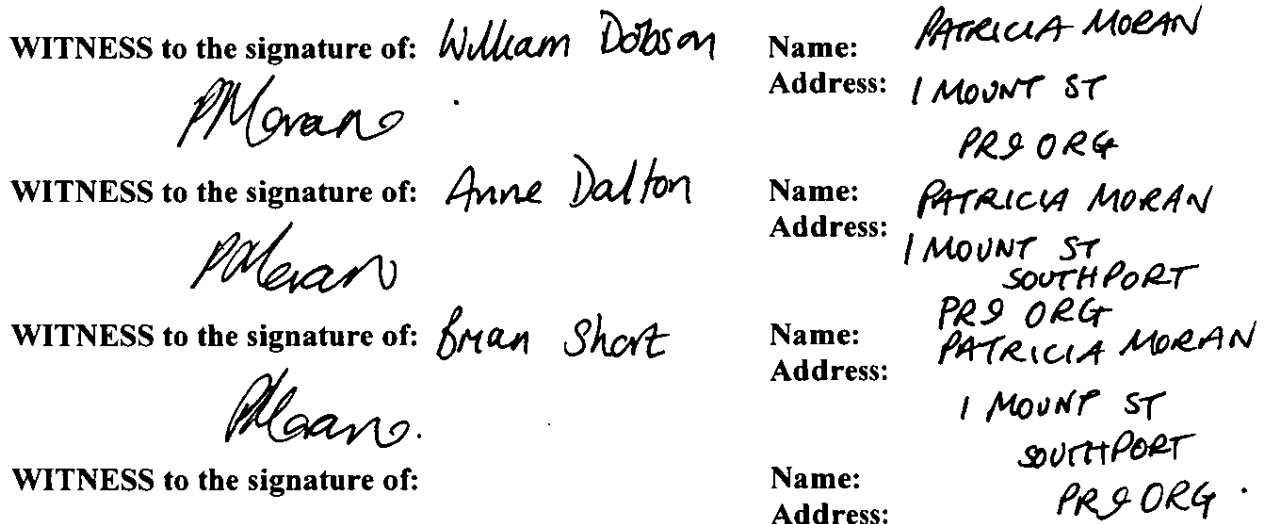 WITNESS to the signature of: William Dobson Name: PATRICIA MORAN
Address: 1 MOUNT ST
PMoran
PR9 ORG
WITNESS to the signature of: Anne Dalton Name: PATRICIA MORAN
Address: 1 MOUNT ST
PMoran
SOUTHPORT
PR9 ORG
WITNESS to the signature of: Brian Short Name: PATRICIA MORAN
Address:
1 MOUNT ST
PMoran.
SOUTHPORT
WITNESS to the signature of: Name: PR9 ORG.
Address: